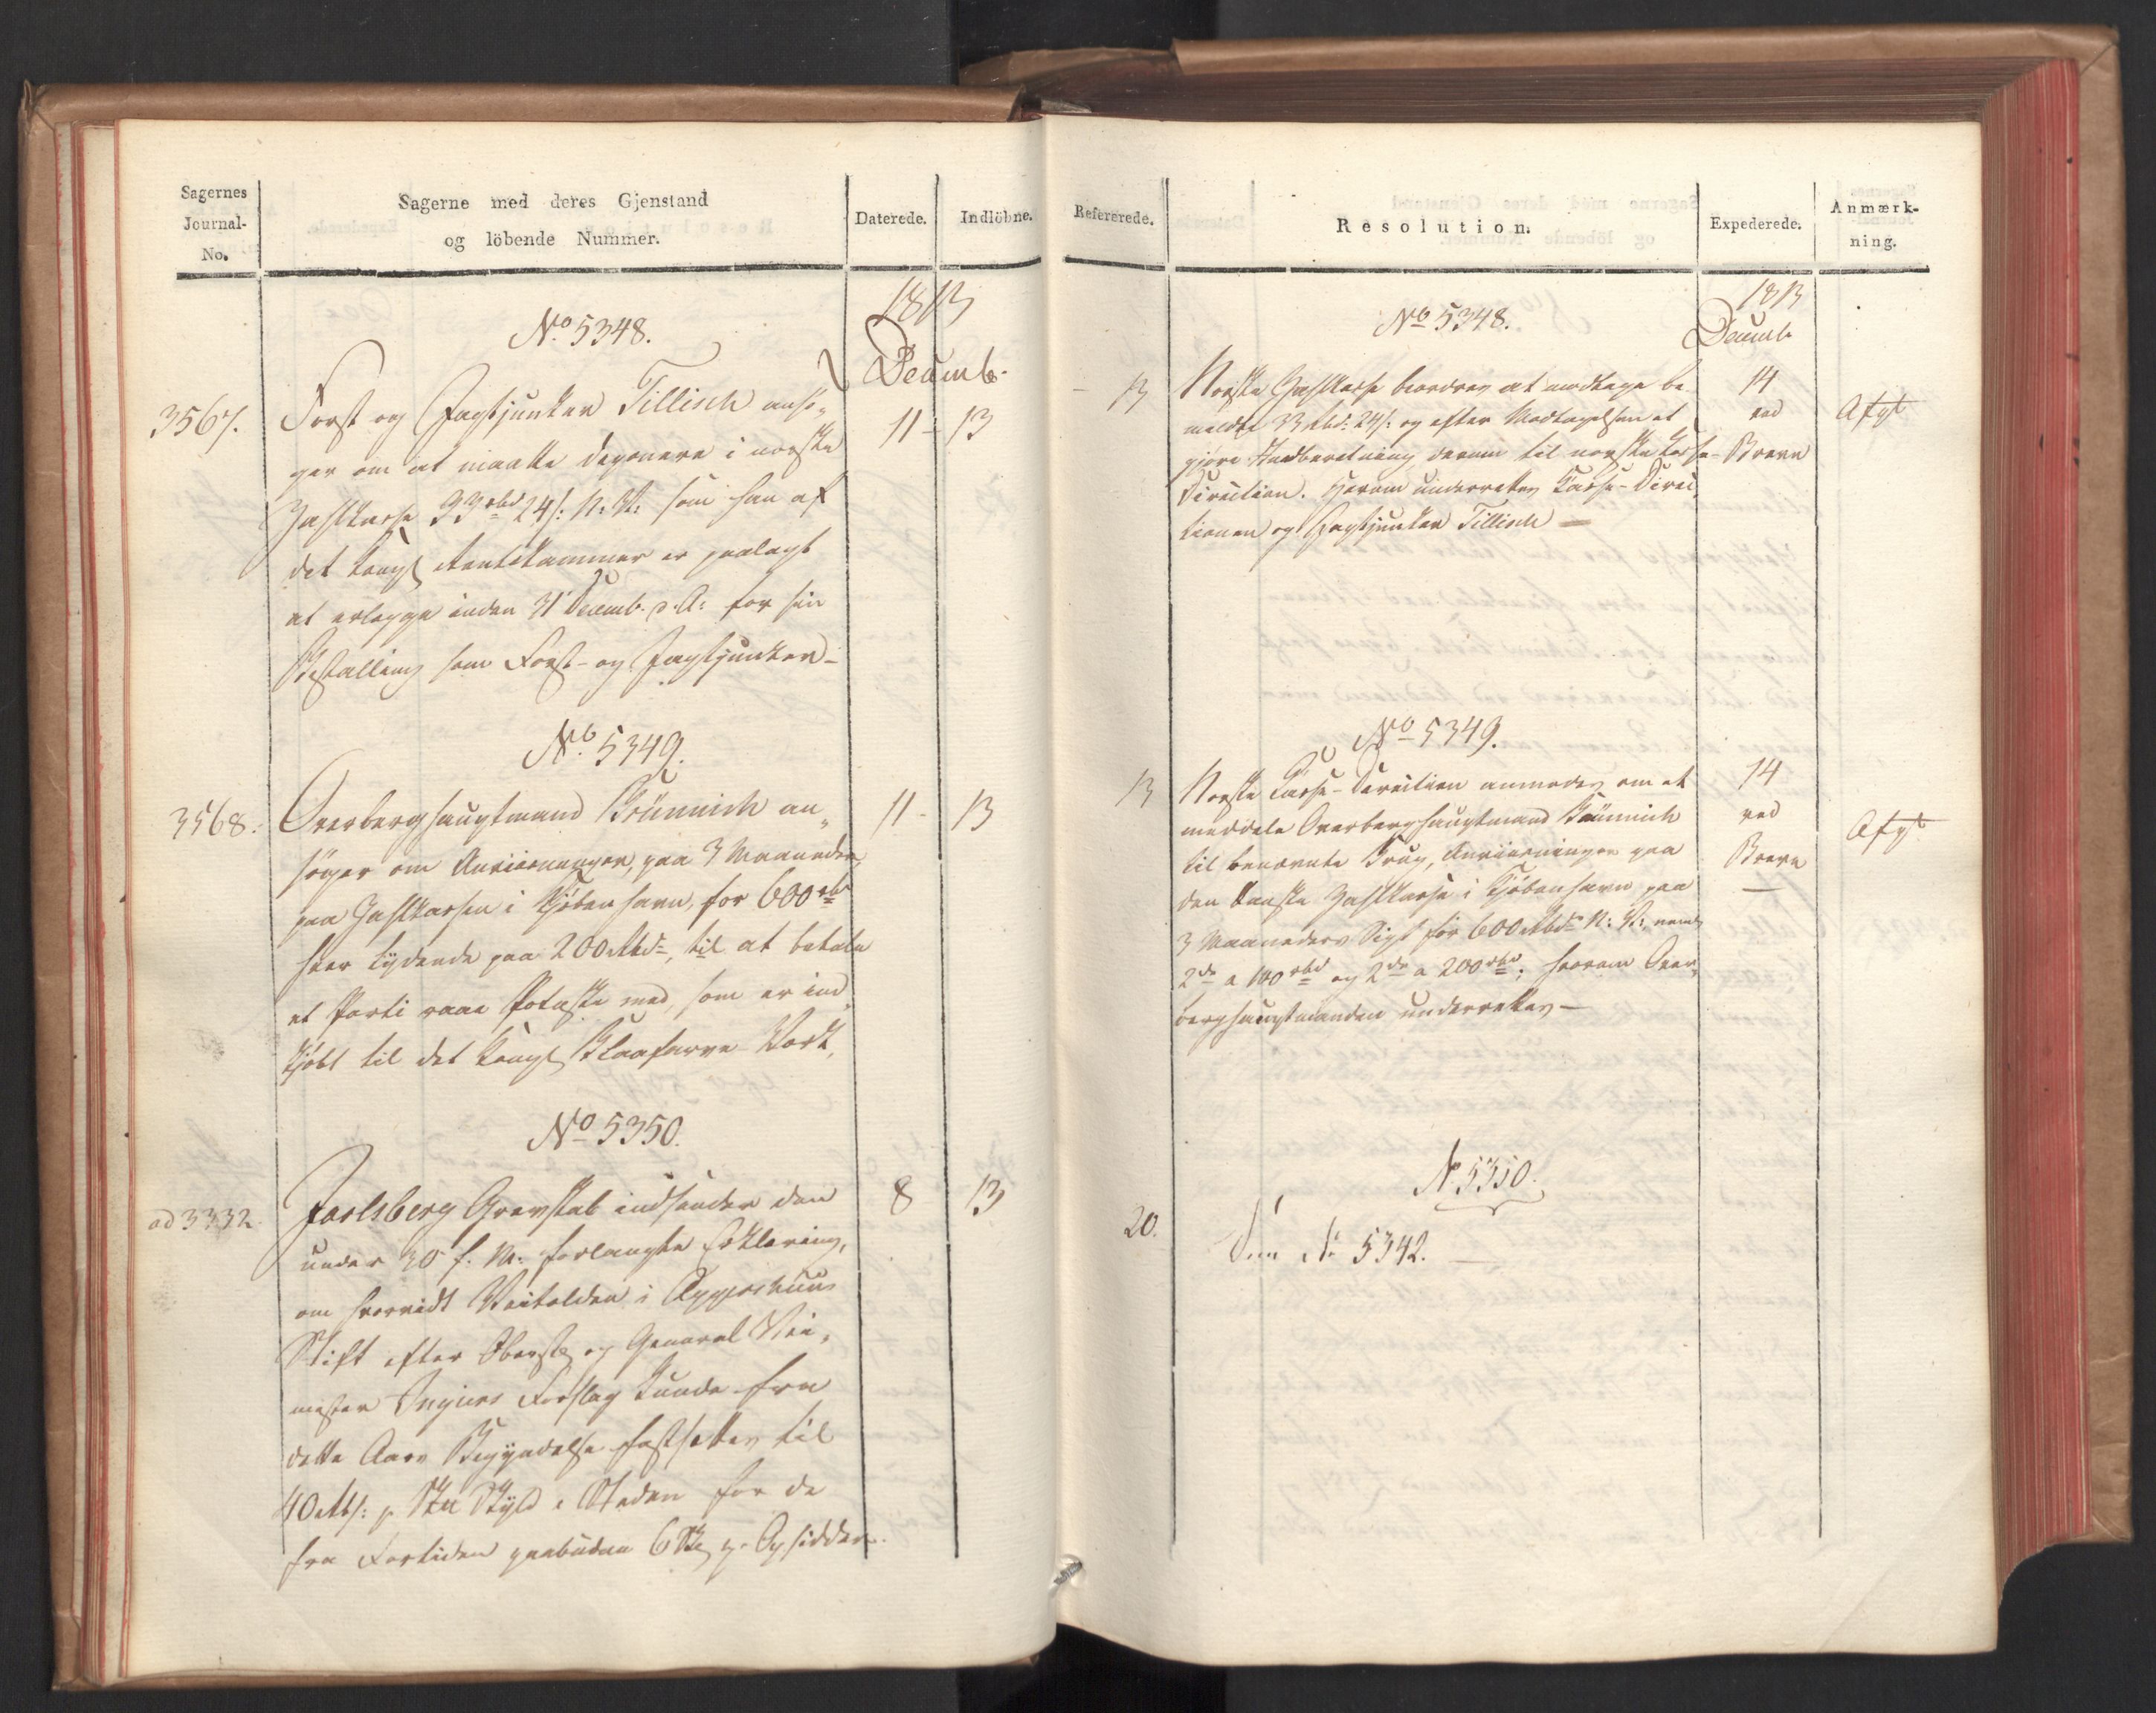 Sagernes
Journal-
No.
Sagerne med deres Gjenstand
og löbende Nummer.
Daterede.
Indlöbne.
1813
Decemb.
No. 5348.
3567.
Forst og Jagtjunker Tillisch ansø-
ger om at maatte deponere i norske
Zahlkasse 33 rbd 24 s: N: V: som han af
det kongl. Rentekammer er paalagt
at erlægge inden 31 Decemb. d: A: for sin
Bestalling som Forst- og Jagtjunker -
11 - 13
No. 5349.
3568.
Overberghauptmand Brünnich an-
søger om Anviisninger, paa 3 Maaneder,
paa Zahlkassen i Kjøbenhavn, for 600 rbd
hver lydende paa 200 Rbd, til at betale
et Parti raae Potaske med, som er ind-
kjøbt til det kongl. Blaafarve-Værk,
11 - 13
No 5350.
ad 3332.
Jarlsberg Grevskab indsender den
under 30 f. M: forlangte Erklæring,
om hvorvidt Veitolden i Aggershuus
Stift efter Oberst og General Vei-
mester forslag kunde fra
dette Aars Begyndelse fastsættes til
40 Rbs: p. Skyld i Steden for de
fra Fortiden paabudne 6 p. Opsidder.
8 13
Refererede.
Resolution.
Expederede.
Anmærk-
ning.
1813
Decemb.
No 5348.
13
Norske Zahlkasse beordres at modtage be-
meldte 33 Rbd: 24 s: og efter Modtagelsen at
gjøre Indberetning derom til norske Casse-
Direction. Herom underrettes Casse-Direc-
tionen og Jagtjunker Tillisch -
14
ved
Breve
Afgt
No 5349.
13
Norske Casse-Direction anmodes om at
meddele Overberghauptmand Brünnich
til benævnte Brug, Anviisninger paa
den danske Zahlkasse i Kjøbenhavn paa
3 Maaneders Sigt for 600 Rbd N: V: neml.
2de a 100 rbd og 2de a 200 rbd; hvorom Over-
berghauptmanden underrettes -
14
ved
Breve
Afgt
N 5350.
20.
Vid No 5342. -